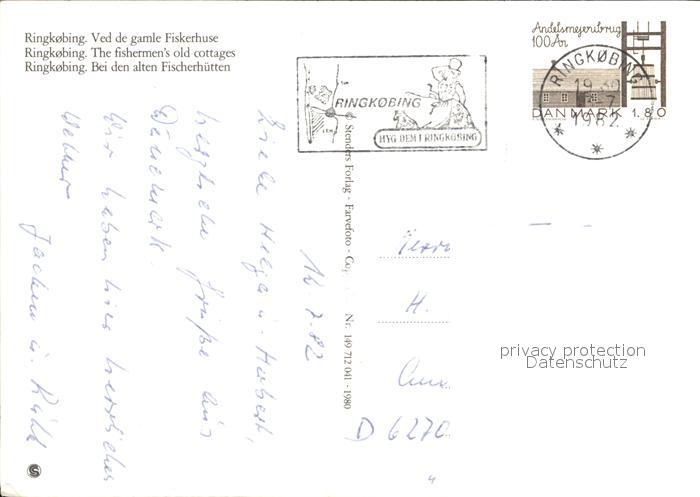 Ringkøbing. Ved de gamle Fiskerhuse
Ringkøbing. The fishermen's old cottages
Ringkøbing. Bei den alten Fischerhütten
RINGKØBING
HYG DEM I RINGKØBING
Andelsmejeribrug
100 År
DANMARK 1.80
RINGKØBING
1982
© Stenders Forlag - Farvefoto - Nr. 149 712 041 - 1980
14.7.82
Liebe Helga u. Herbert,
herzliche Grüße aus
Dänemark.
Wir haben hier herrliches
Wetter
Jochen u.
Herrn
H.
D 6270
privacy protection
Datenschutz